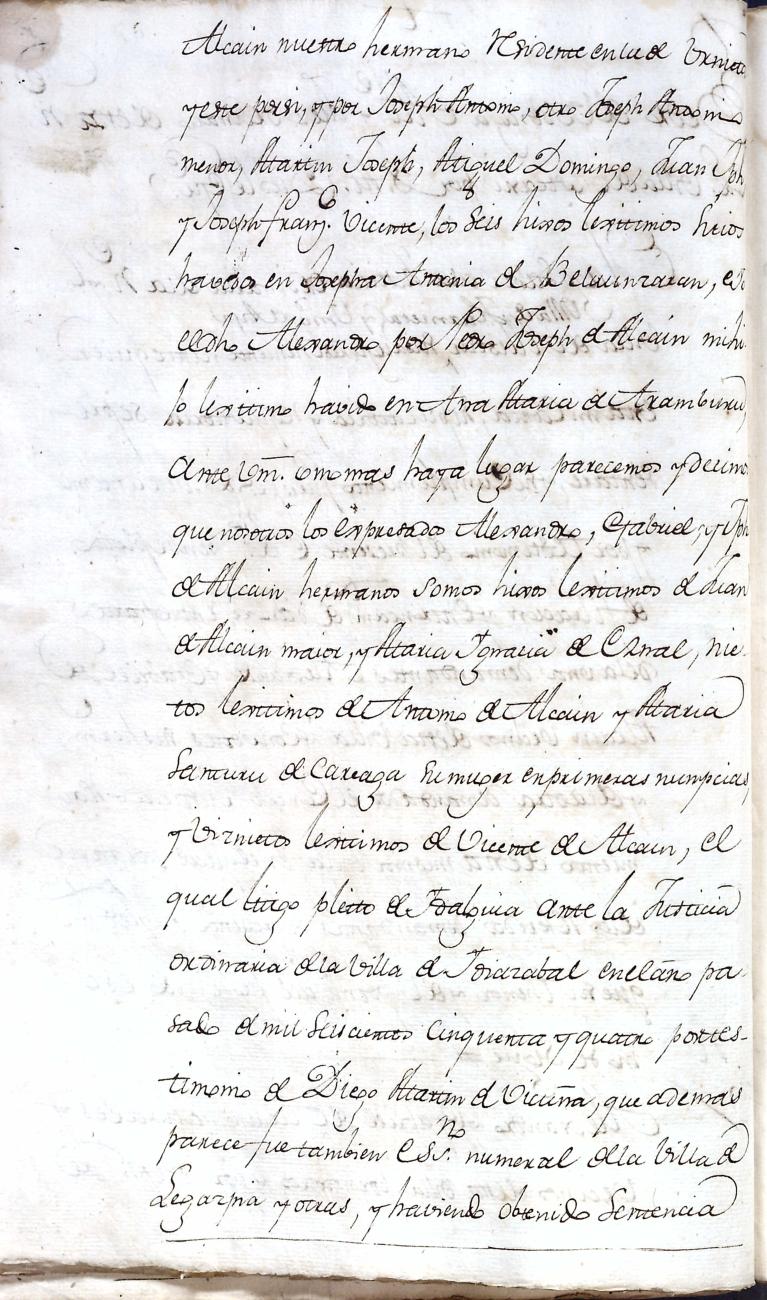 Alcain nuestro hermano Residente en la de Urnieta
y este por si, y por Joseph Antonio, otro Joseph Antonio
menor, Martin Joseph, Miguel Domingo, Juan Jph
y Joseph Franco. Vicente, los seis hixos lexitimos suios
havidos en Josepha Antonia de Belaunzaran, e Yo
el dho Alexandro por Pedro Joseph de Alcain mi hi-
jo lexitimo havido en Ana Maria de Aramburu,
Ante Vm. como mas haya lugar parecemos y decimos
que nosotros los expresados Alexandro, Gabriel, y Jph
de Alcain hermanos somos hixos lexitimos de Juan
de Alcain maior, y Maria Ignacia de Eznal, nie-
tos lexitimos de Antonio de Alcain y Maria
Santuru de Careaga su muger en primeras numpcias,
y Viznietos lexitimos de Vicente de Alcain, el
qual litigo pleito de Idalguia ante la Justicia
ordinaria de la Villa de Idiazabal en el año pa-
sado de mil seiscientos cinquenta y quatro por tes-
timonio de Diego Martin de Vicuña, que ademas
parece fue tambien Essno. numeral de la Villa de
Legazpia y otras, y haviendo obtenido Sentencia